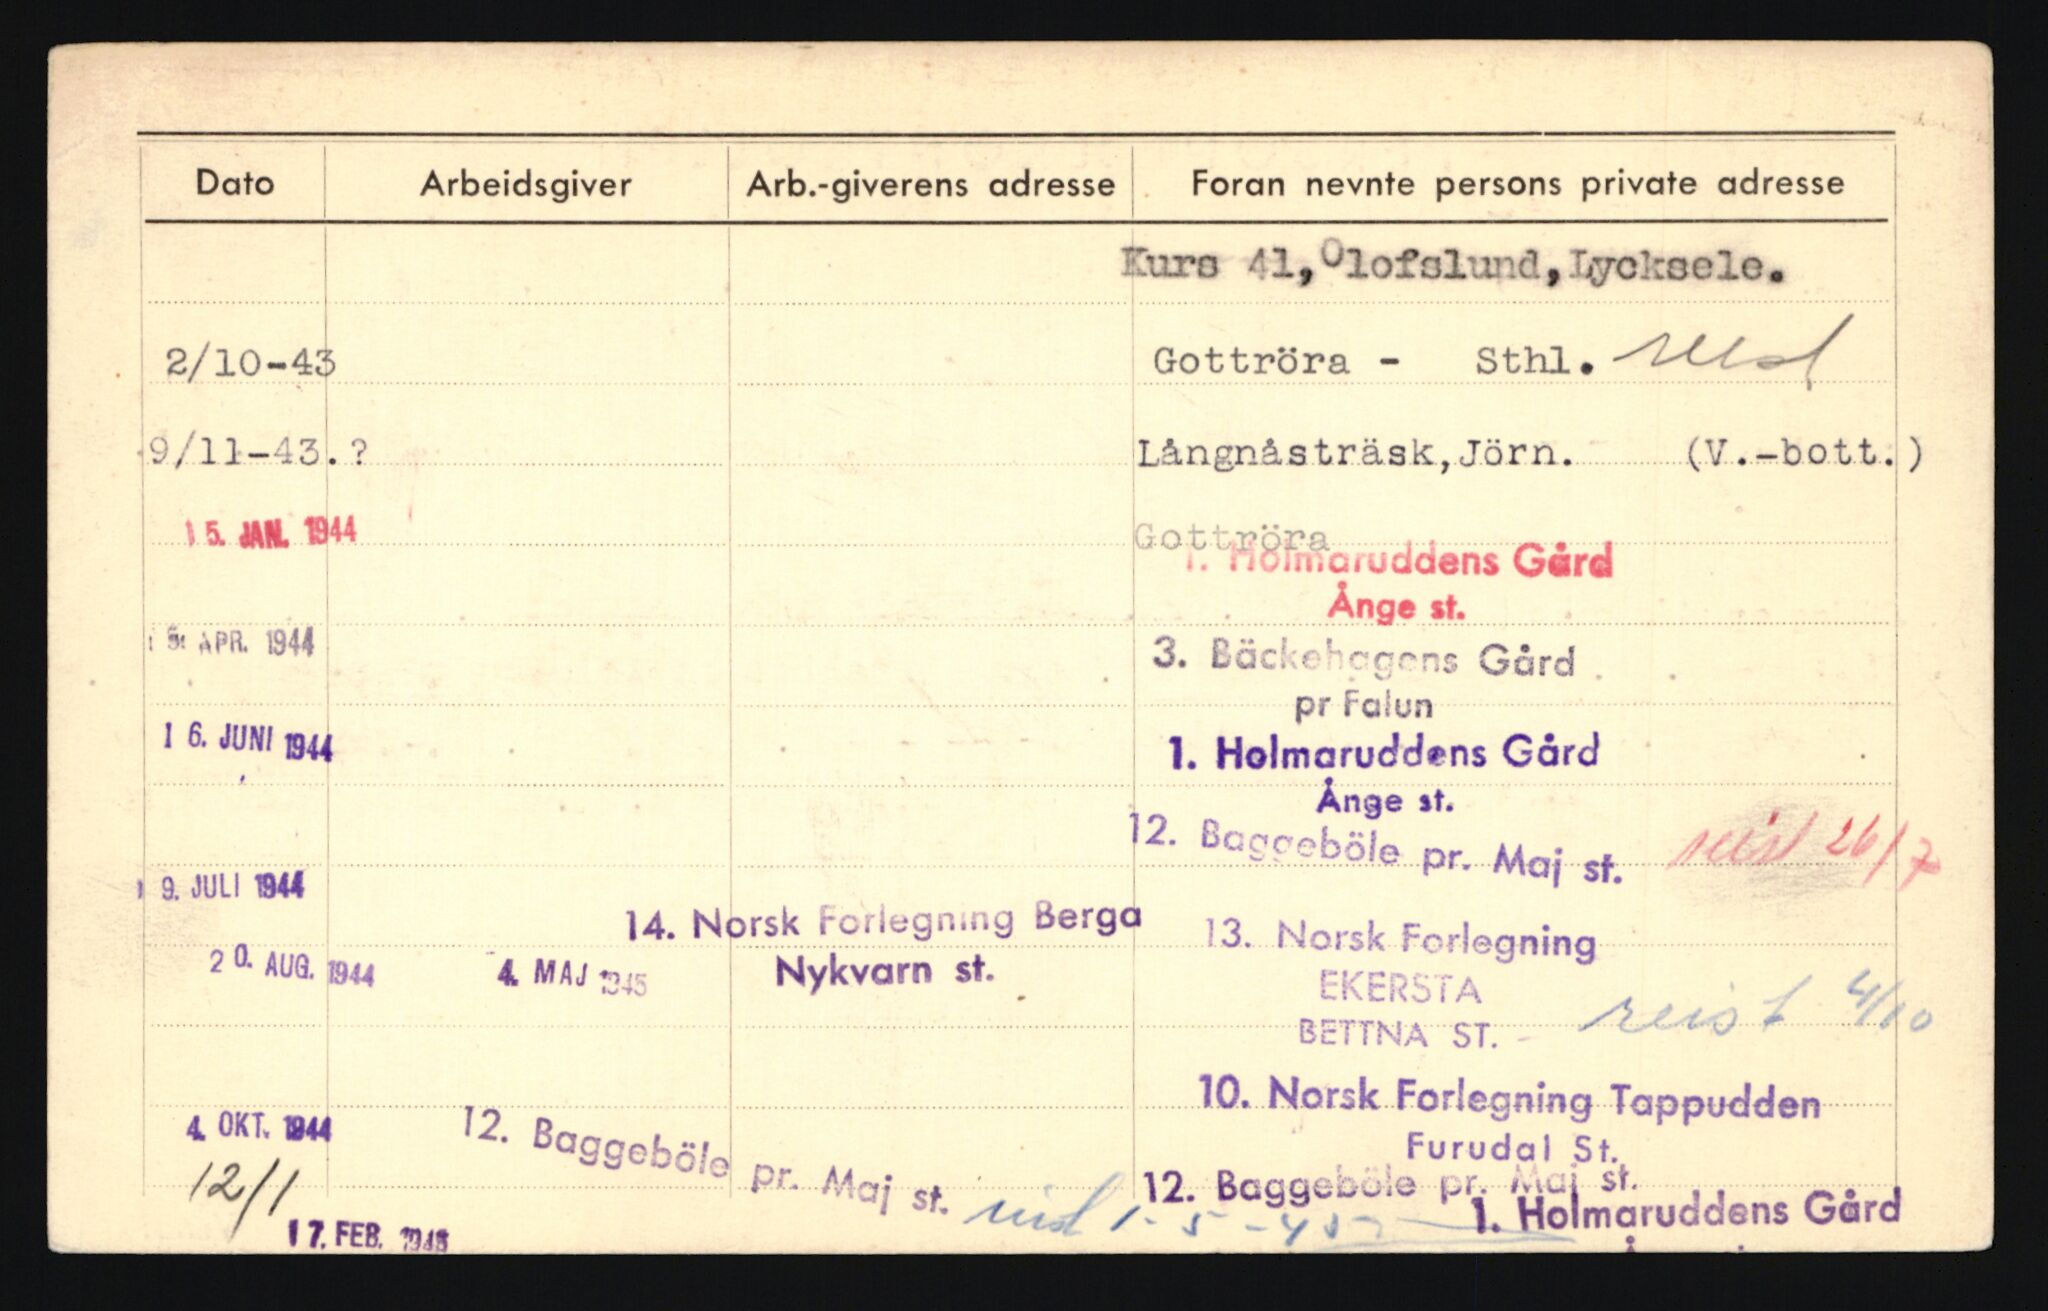 Dato Arbeidsgiver Arb.-giverens adresse Foran nevnte persons private adresse
Kurs 41, Olofslund, Lycksele.
2/10-43 Gottröra - Sthl. reist
9/11-43.? Långnåsträsk, Jörn. (V.-bott.)
15. JAN. 1944 Gottröra
1. Holmaruddens Gård
Ånge st.
APR. 1944 3. Bäckehagens Gård
pr Falun
16. JUNI 1944 1. Holmaruddens Gård
Ånge st.
12. Baggeböle pr. Maj st. reist 26/7
19. JULI 1944 14. Norsk Forlegning Berga 13. Norsk Forlegning
20. AUG. 1944 4. MAJ 1945 Nykvarn st. EKERSTA
BETTNA ST. - reist 4/10
10. Norsk Forlegning Tappudden
4. OKT. 1944 Furudal St.
12/1 12. Baggeböle pr. Maj st. reist 1-5-45 12. Baggeböle pr. Maj st.
17. FEB. 1945 1. Holmaruddens Gård